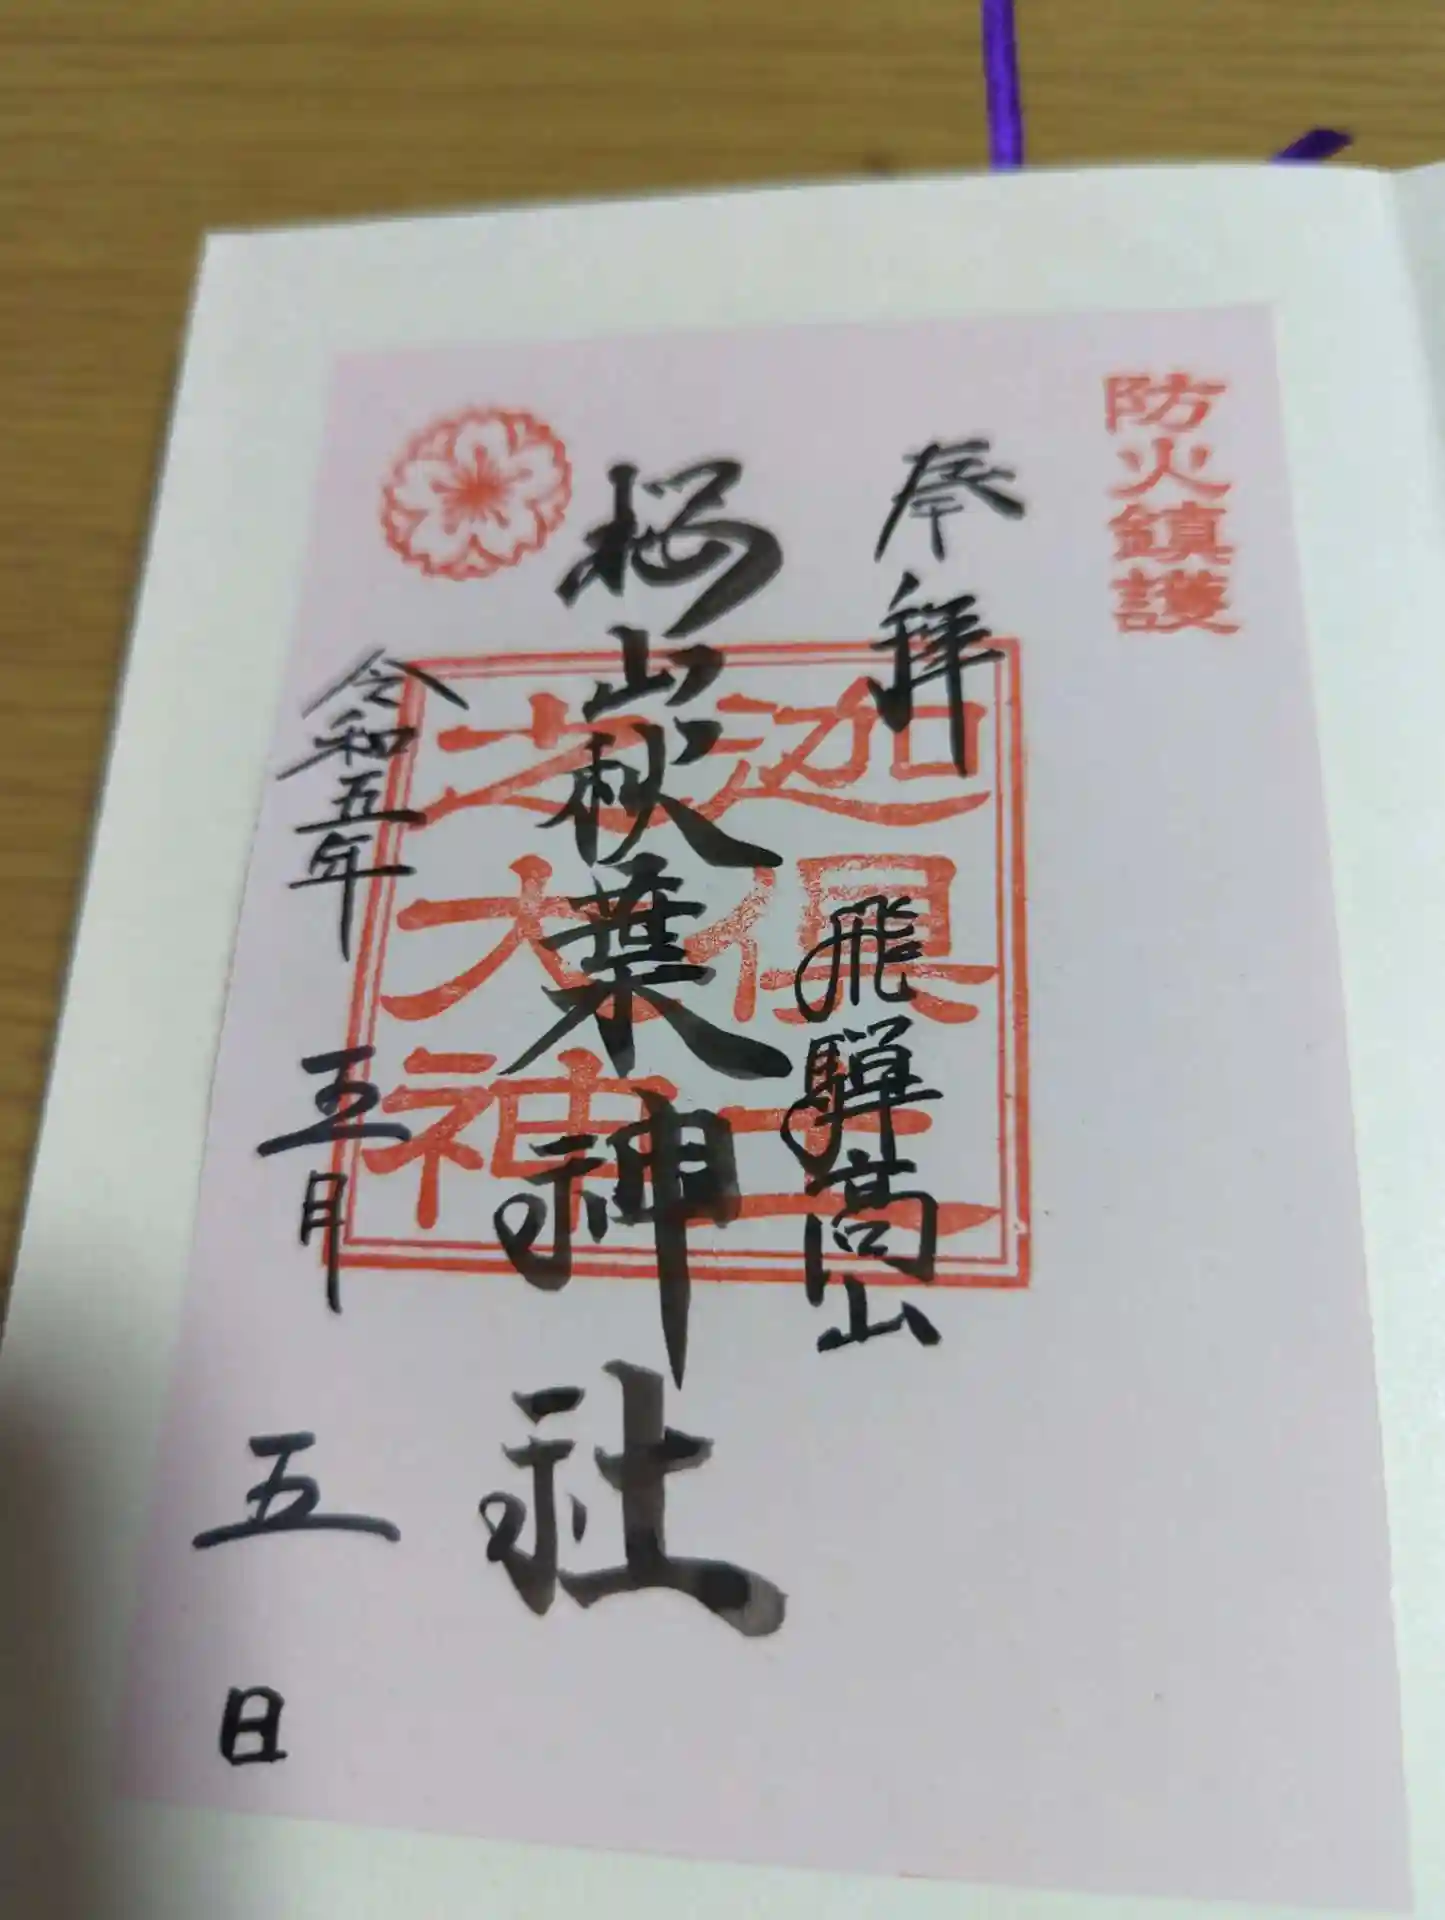 防火鎮護
奉拝
飛騨高山
迦倶土
之大神
桜山秋葉神社
令和五年五月五日